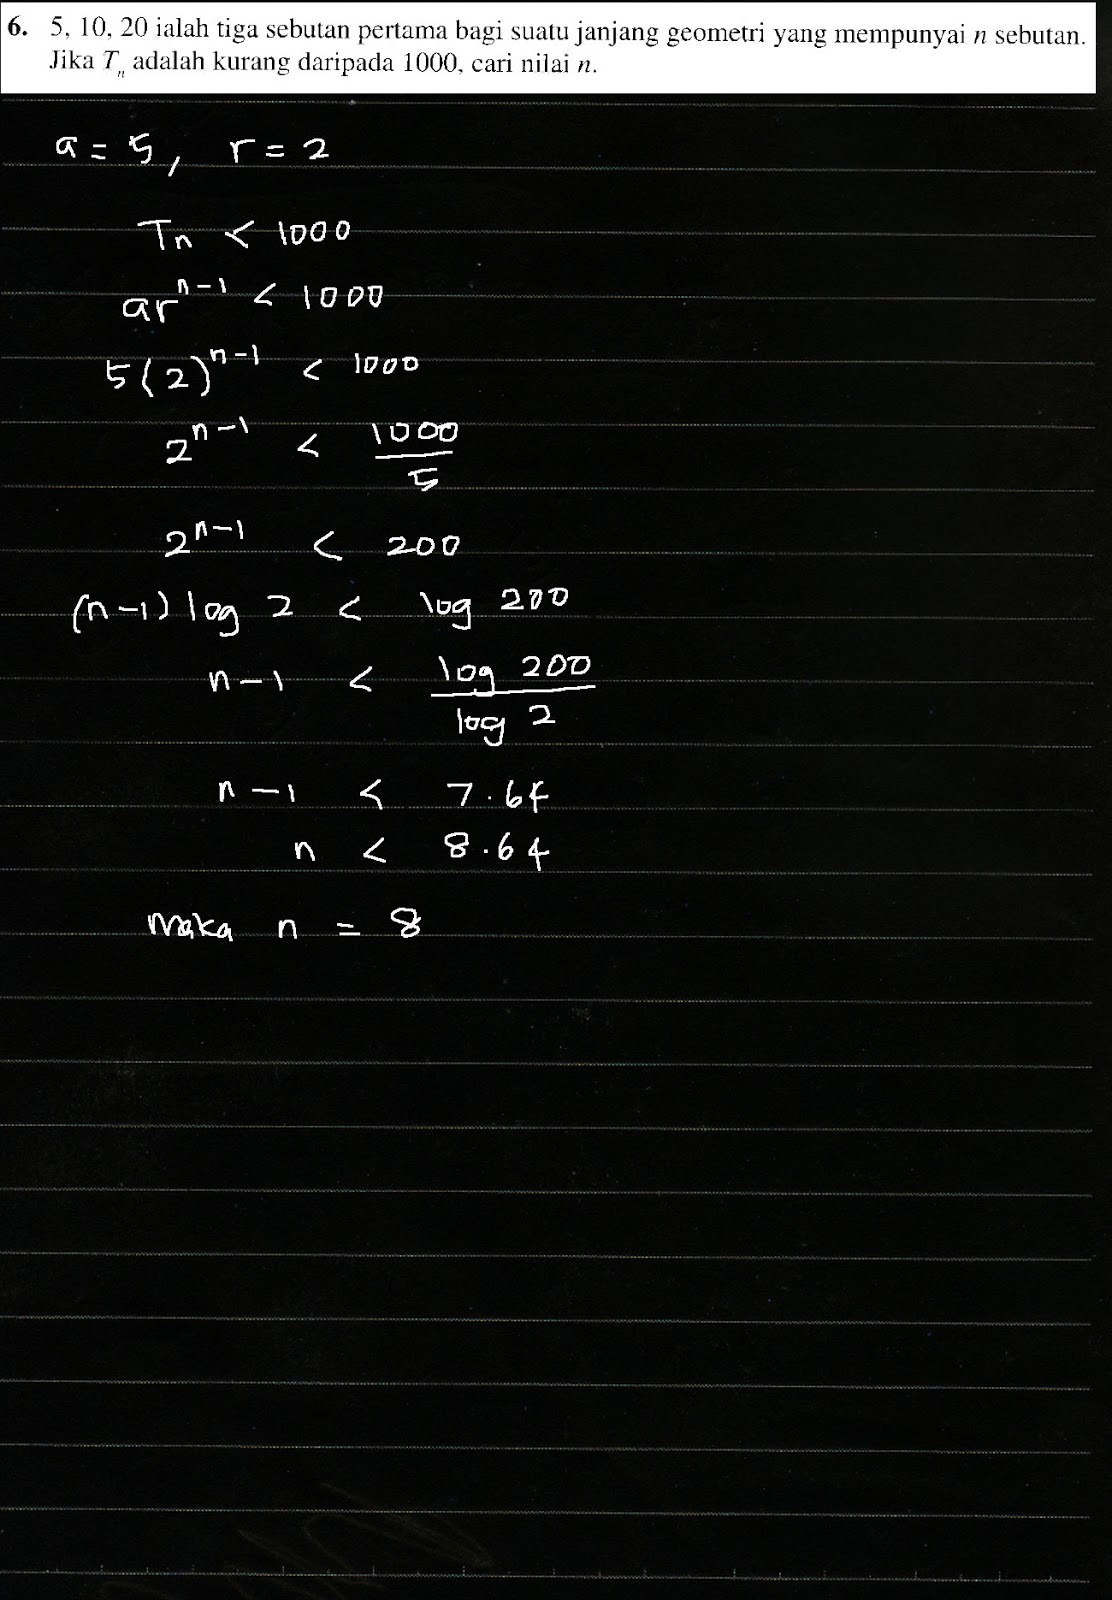 6. 5, 10, 20 ialah tiga sebutan pertama bagi suatu janjang geometri yang mempunyai n sebutan.
Jika Tₙ adalah kurang daripada 1000, cari nilai n.
a = 5, r = 2
Tn < 1000
ar^(n-1) < 1000
5(2)^(n-1) < 1000
2^(n-1) < 1000/5
2^(n-1) < 200
(n-1) log 2 < log 200
n-1 < log 200 / log 2
n-1 < 7.64
n < 8.64
maka n = 8